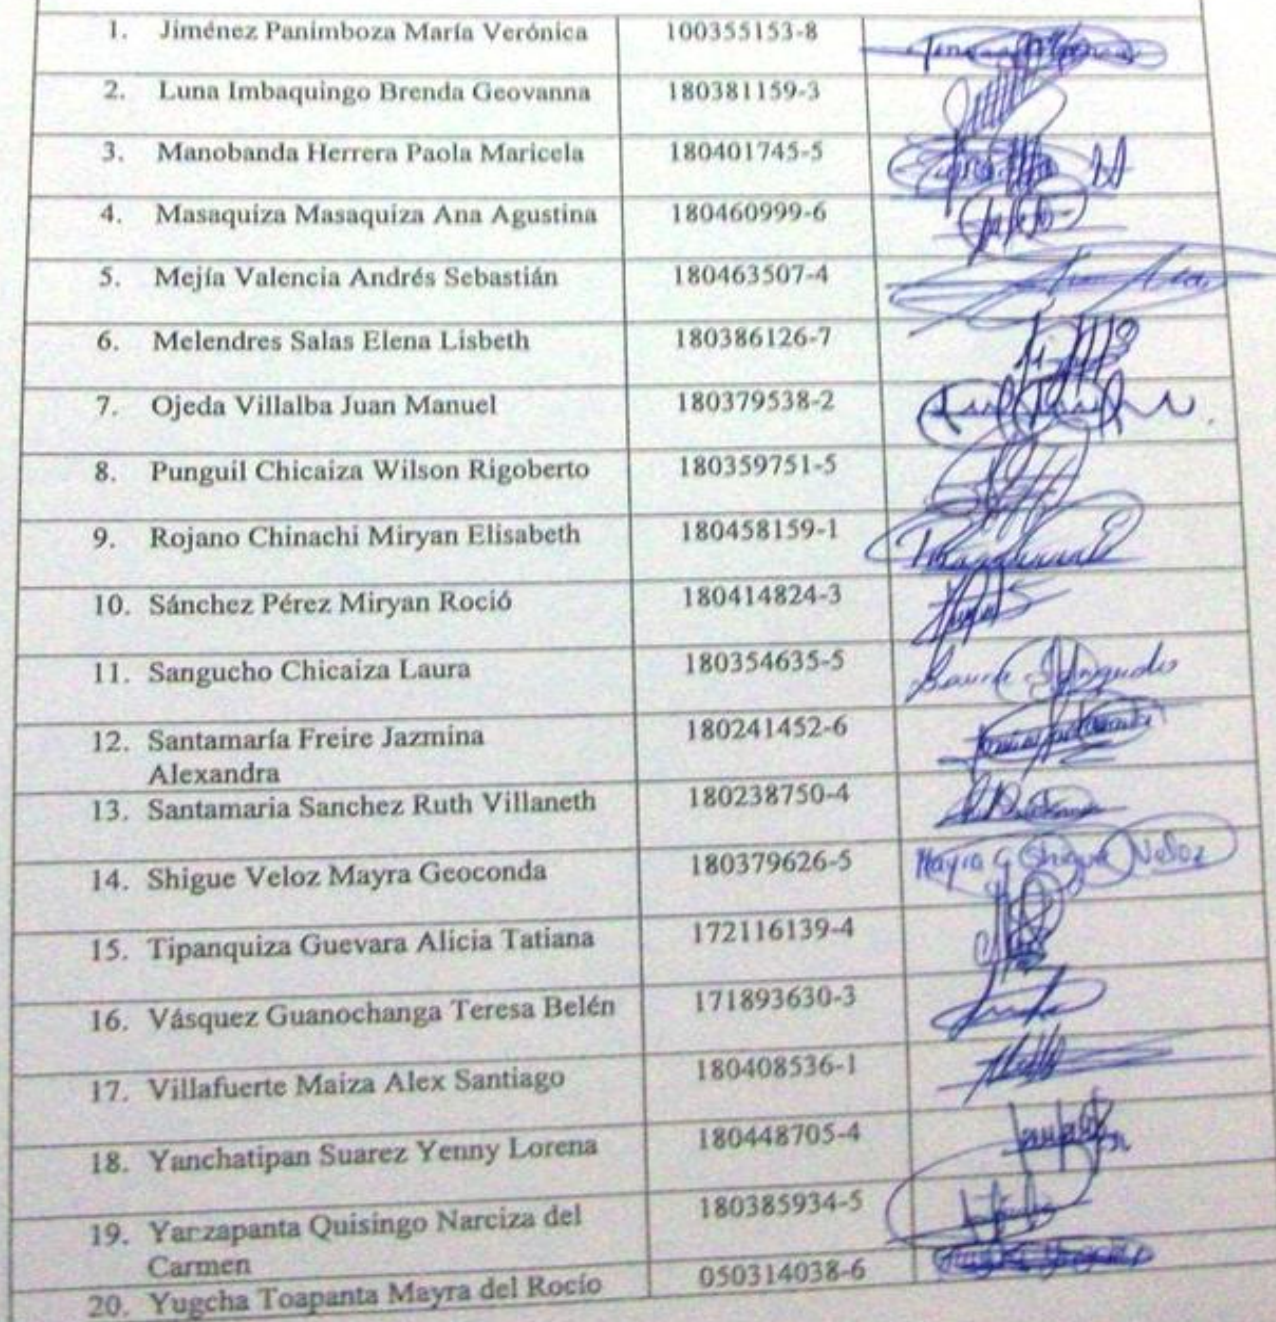 1. Jiménez Panimboza María Verónica 100355153-8
2. Luna Imbaquingo Brenda Geovanna 180381159-3
3. Manobanda Herrera Paola Maricela 180401745-5
4. Masaquiza Masaquiza Ana Agustina 180460999-6
5. Mejía Valencia Andrés Sebastián 180463507-4
6. Melendres Salas Elena Lisbeth 180386126-7
7. Ojeda Villalba Juan Manuel 180379538-2
8. Punguil Chicaiza Wilson Rigoberto 180359751-5
9. Rojano Chinachi Miryan Elisabeth 180458159-1
10. Sánchez Pérez Miryan Roció 180414824-3
11. Sangucho Chicaiza Laura 180354635-5
12. Santamaría Freire Jazmina 180241452-6
Alexandra
13. Santamaria Sanchez Ruth Villaneth 180238750-4
14. Shigue Veloz Mayra Geoconda 180379626-5 Mayra G Shigue Veloz
15. Tipanquiza Guevara Alicia Tatiana 172116139-4
16. Vásquez Guanochanga Teresa Belén 171893630-3
17. Villafuerte Maiza Alex Santiago 180408536-1
18. Yanchatipan Suarez Yenny Lorena 180448705-4
19. Yanzapanta Quisingo Narciza del 180385934-5
Carmen
20. Yugcha Toapanta Mayra del Rocío 050314038-6